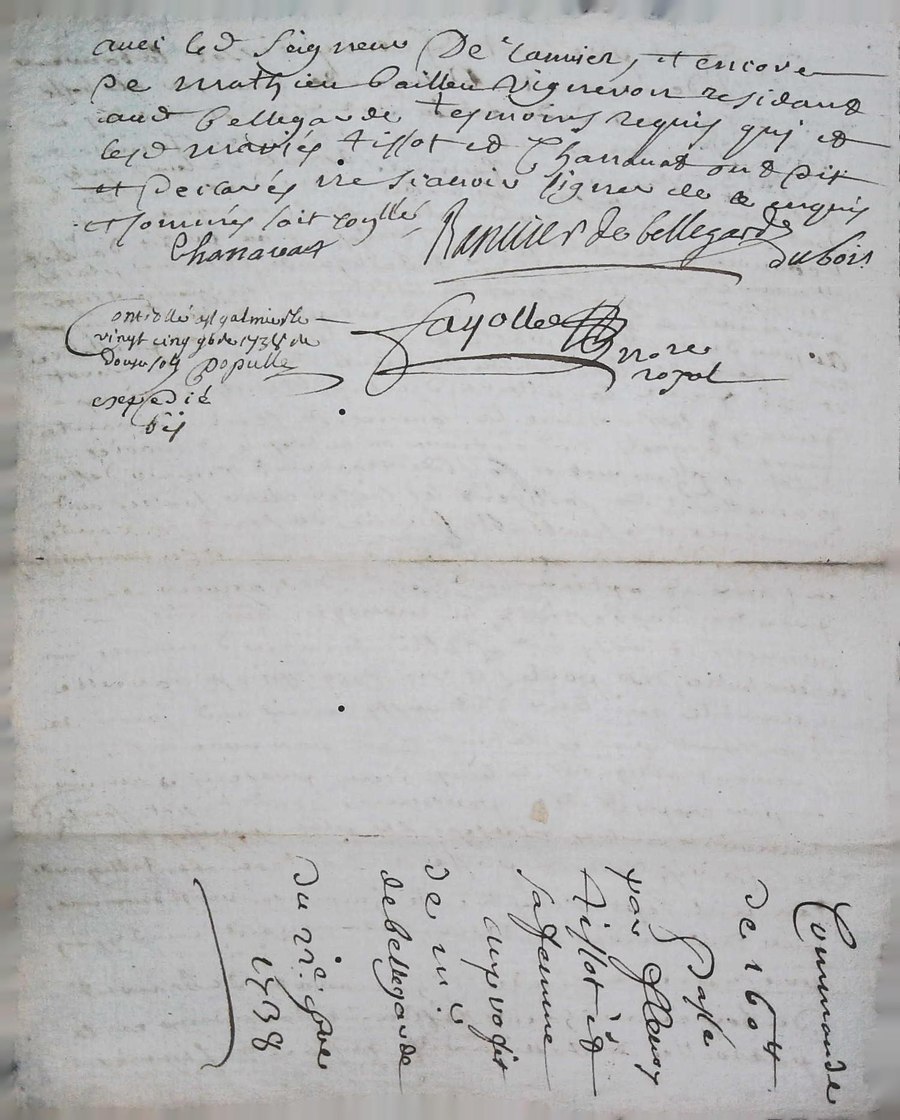 avec led Seigneur De rannier, et encore
De mathieu bailleu vigneron residand
aud bellegarde temoins requis qui et
lesd mariés tissot et Chanavat ont dit
et declarés ne scavoir signer de ce enquis
et sommés soit
Chanavat
Rannier de bellegarde
dubois
Controllé a st galmier le
vingt cinq 9bre 1738 Re
douze sols Populle
fayolle
no re
royal
expedié
Commande
de 160
Passé
par fleury
tissot et
sa femme
au profit
de mr
de bellegarde
du 9bre
1738